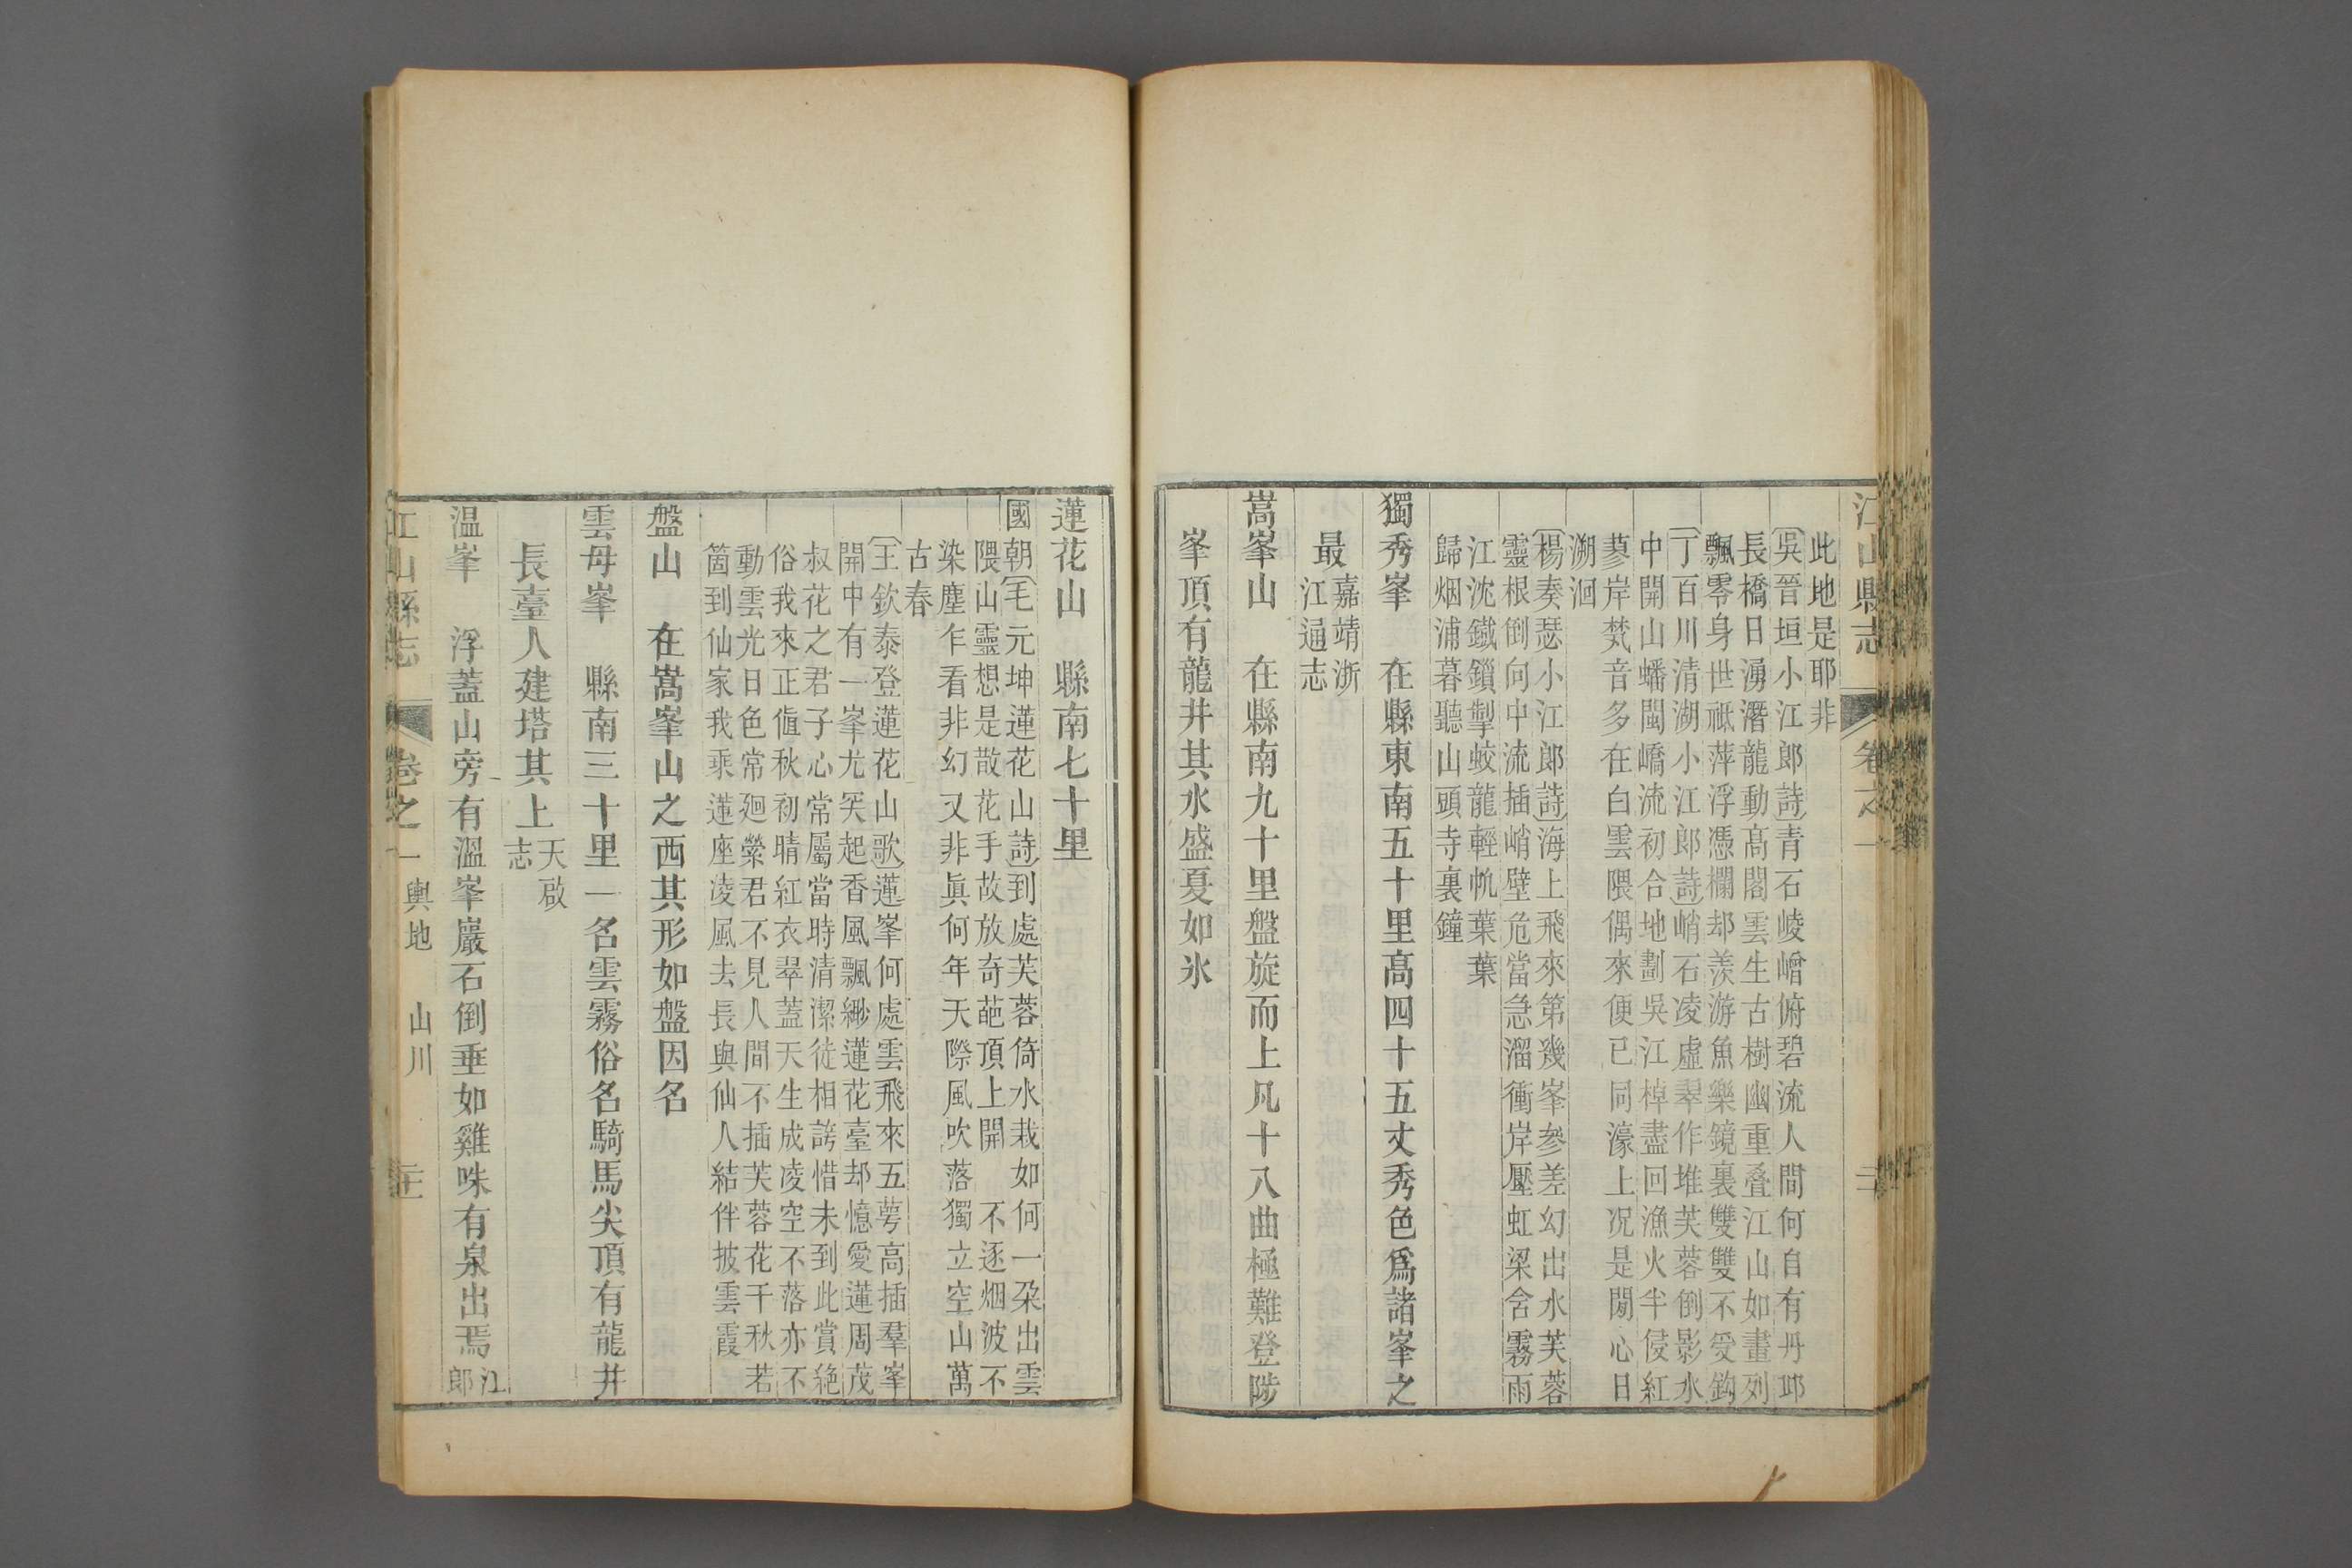 江山縣志 卷之一
此地是耶非
吳晉垣小江郎詩青石崚嶒俯碧流人間何自有丹邱
長橋日湧潛龍動高閣雲生古樹幽重叠江山如畫列
飄零身世祗萍浮憑欄却羨游魚樂鏡裏雙雙不受鈎
丁百川清湖小江郎詩峭石凌虛翠作堆芙蓉倒影水
中開山蟠閩嶠流初合地劃吳江棹盡回漁火半侵紅
蓼岸梵音多在白雲隈偶來便已同濠上况是閒心日
溯洄
楊奏瑟小江郎詩海上飛來第幾峯參差幻出水芙蓉
靈根倒向中流插峭壁危當急溜衝岸壓虹梁含霧雨
江沈鐵鎖掣蛟龍輕帆葉葉
歸烟浦暮聽山頭寺裏鐘
獨秀峯 在縣東南五十里高四十五丈秀色爲諸峯之
最嘉靖浙
江通志
嵩峯山 在縣南九十里盤旋而上凡十八曲極難登陟
峯頂有龍井其水盛夏如氷
蓮花山 縣南七十里
國朝毛元坤蓮花山詩到處芙蓉倚水栽如何一朶出雲
隈山靈想是散花手故放奇葩頂上開 不逐烟波不
染塵乍看非幻又非眞何年天際風吹落獨立空山萬
古春
王欽泰登蓮花山歌蓮峯何處雲飛來五萼高插羣峯
開中有一峯尤突起香風飄緲蓮花臺却憶愛蓮周茂
叔花之君子心常屬當時清潔徒相誇惜未到此賞絶
俗我來正值秋初晴紅衣翠蓋天生成凌空不落亦不
動雲光日色常廻縈君不見人間不插芙蓉花千秋若
箇到仙家我乘蓮座凌風去長與仙人結伴披雲霞
盤山 在嵩峯山之西其形如盤因名
雲母峯 縣南三十里一名雲霧俗名騎馬尖頂有龍井
長臺人建塔其上天啟
志
温峯 浮蓋山旁有溫峯巖石倒垂如雞咮有泉出焉江
郎
江山縣志 卷之一 輿地 山川